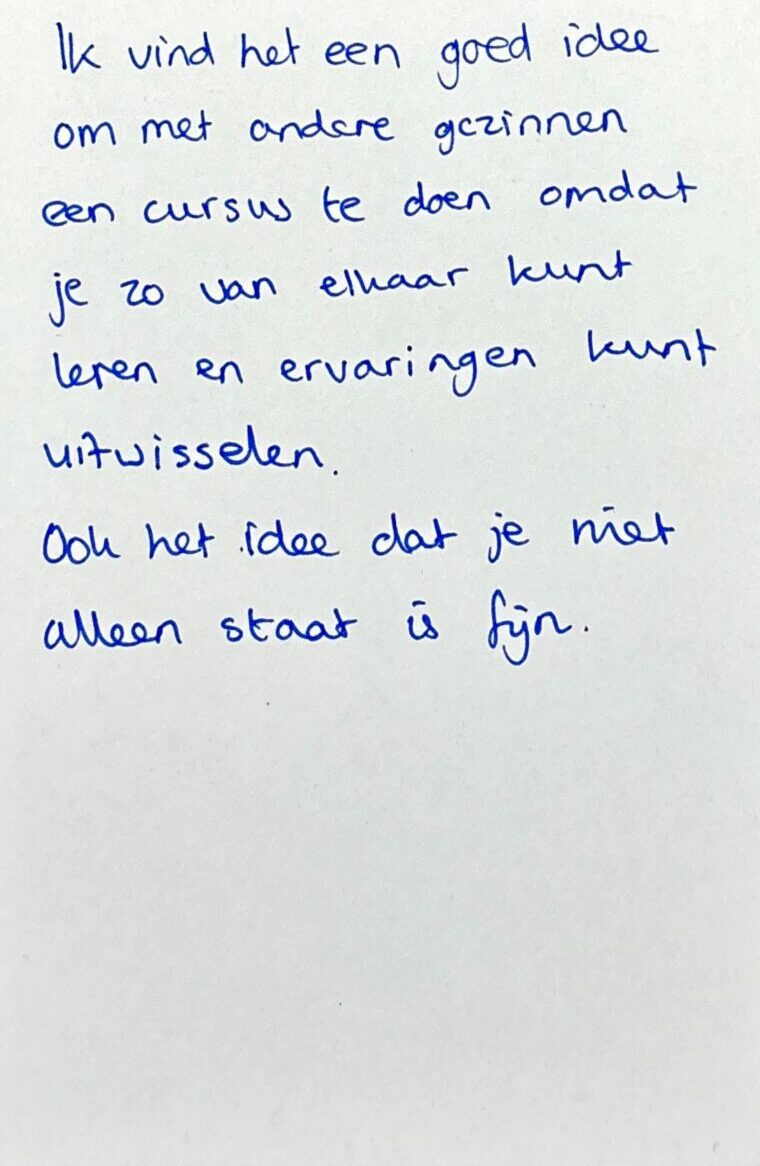 Ik vind het een goed idee
om met andere gezinnen
een cursus te doen omdat
je zo van elkaar kunt
leren en ervaringen kunt
uitwisselen.
Ook het idee dat je niet
alleen staat is fijn.